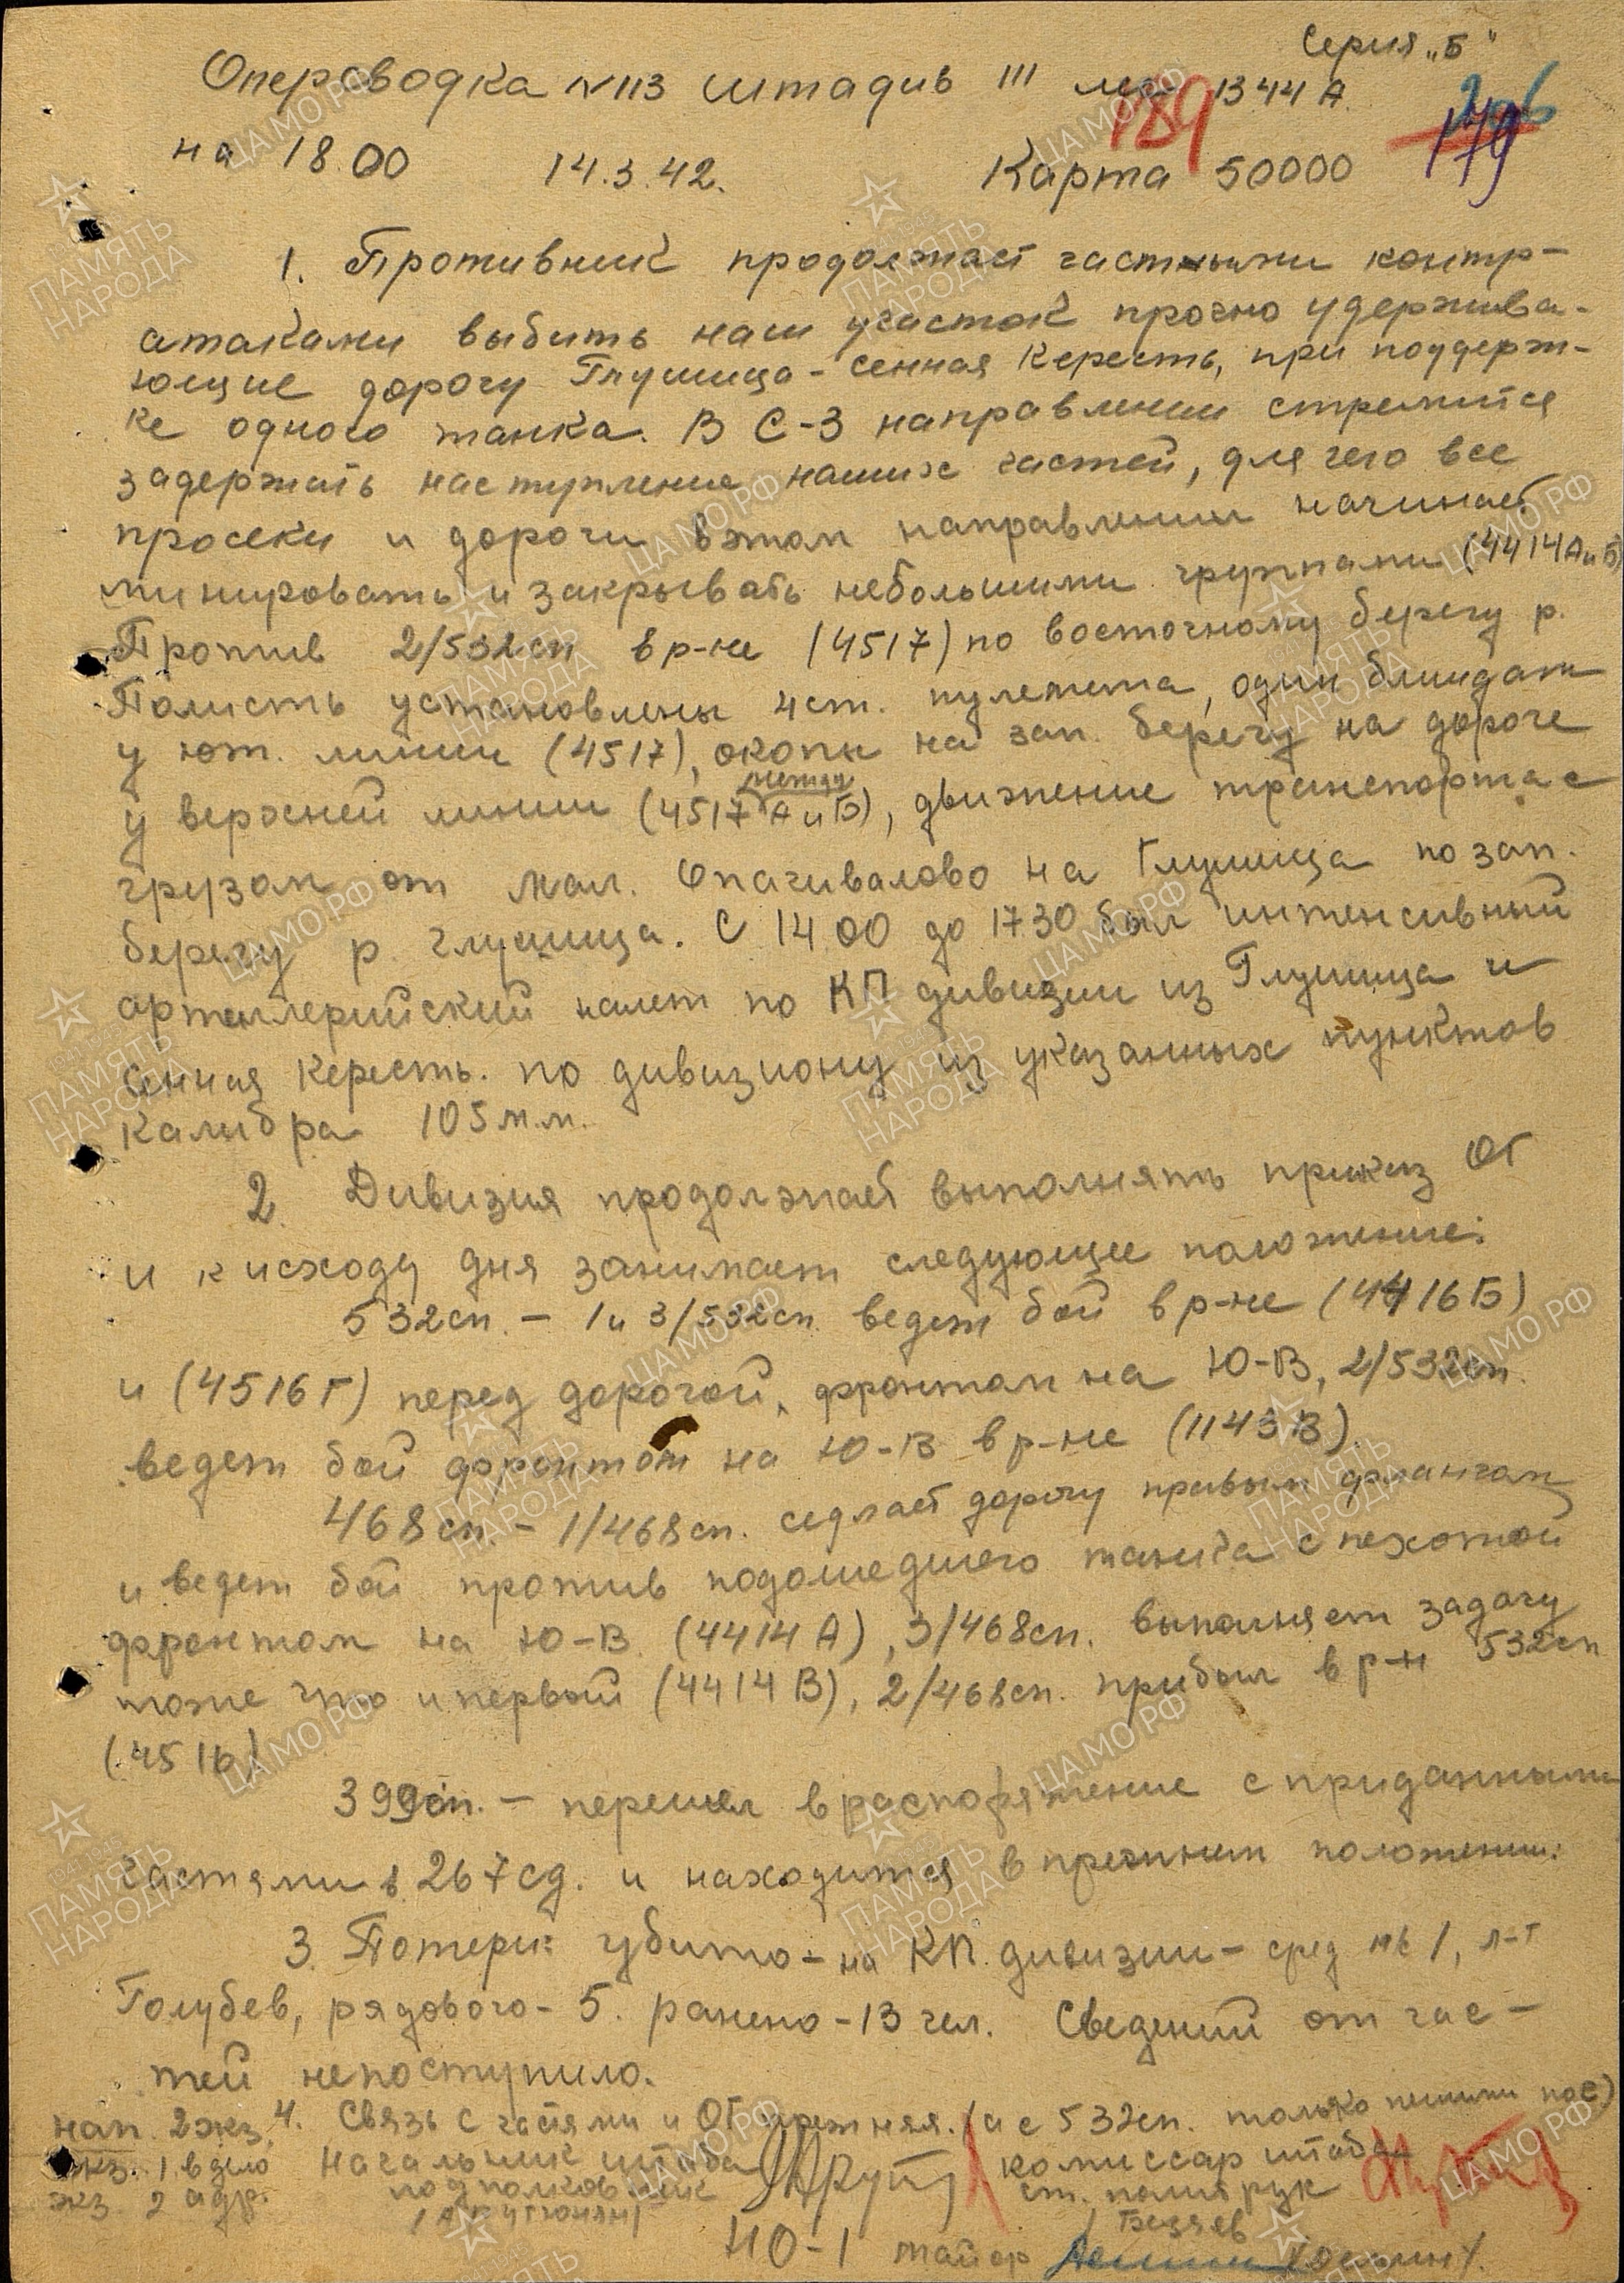 Серия „Б"
Оперсводка №113 штадив 111 лес 1344 А.
189
206
179
на 18.00 14.3.42. Карта 50000
1. Противник продолжает частными контр-
атаками выбить наш участок прочно удержива-
ющие дорогу Глушица - Сенная Кересть, при поддерж-
ке одного танка. В С-З направлении стремится
задержать наступление наших частей, для чего все
просеки и дороги в этом направлении начинает
минировать и закрывать небольшими группами (4414А и Б)
Против 2/532сп в р-не (4517) по восточному берегу р.
Полисть установлены 4 ст. пулемета, один блиндаж
у юж. линии (4517), окопы на зап. берегу на дороге
между
у верхней линии (4517 А и Б), движение транспорта с
грузом от Мал. Опачивалово на Глушица по зап.
берегу р. Глушица. С 14.00 до 17.30 был интенсивный
артиллерийский налет по КП дивизии из Глушица и
Сенная Кересть. по дивизиону из указанных пунктов
калибра 105 м.м.
2. Дивизия продолжает выполнять приказ ОГ
и к исходу дня занимает следующее положение:
532сп. - 1 и 3/532сп ведет бой в р-не (4416Б)
и (4516Г) перед дорогой, фронтом на Ю-В, 2/532сп.
ведет бой фронтом на Ю-В в р-не (1143В).
468сп. - 1/468сп. седлает дорогу правым флангом
и ведет бой против подошедшего танка с пехотой
фронтом на Ю-В (4414А), 3/468сп. выполняет задачу
тоже что и первый (4414В), 2/468сп. прибыл в р-н 532сп
(4516)
399сп. - перешел в распоряжение с приданными
частями в 267сд. и находится в прежним положении.
3. Потери: убито - на КП. дивизии - сред. 1, л-т
Голубев, рядового - 5. ранено - 13 чел. Сведений от час-
тей непоступило.
4. Связь с частями и ОГ прежняя. (а с 532сп. только пешими)
нап. 2 экз.
экз. 1 в дело
экз. 2 адр.
Начальник штаба
подполковник
/Арутюнян/
Комиссар штаба
ст. политрук
/Безяев
НО-1 майор